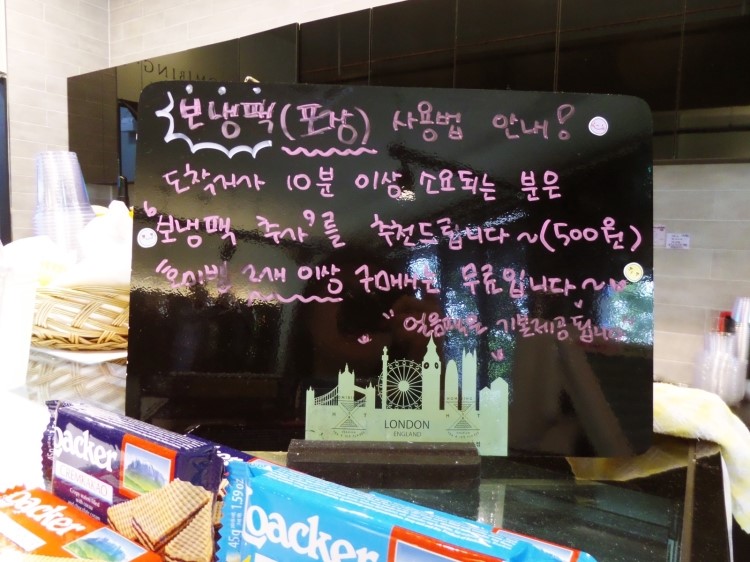 보냉팩(포장) 사용법 안내!
도착지가 10분 이상 소요되는 분은
"보냉팩 추가"를 추천드립니다~(500원)
2개 이상 구매는 무료입니다~
얼음팩은 기본제공 됩니다
LONDON
ENGLAND
Loacker
CREMKAKAO
Loacker
45g 1.59oz
Loacker